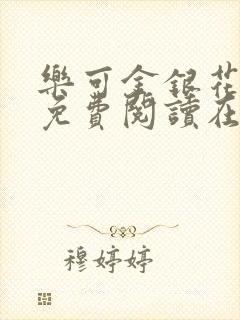 樂可金銀花
免費閱讀在
穆婷婷